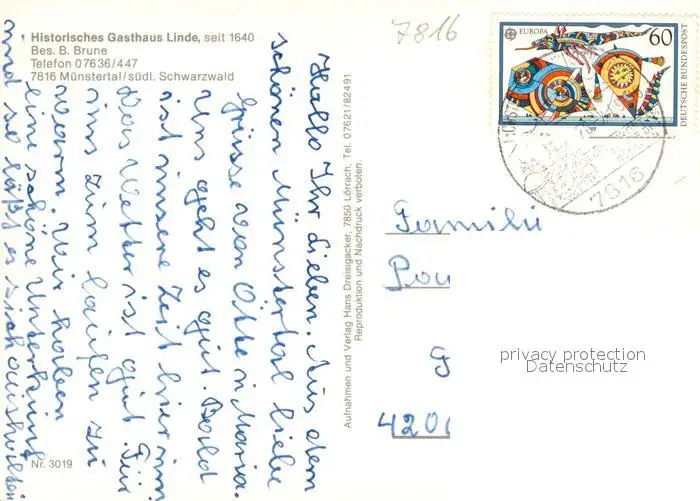 Historisches Gasthaus Linde, seit 1640
Bes. B. Brune
Telefon 07636/447
7816 Münstertal/südl. Schwarzwald
7816
EUROPA
60
DEUTSCHE BUNDESPOST
7816
Hallo Ihr Lieben. Aus dem
schönen Münstertal liebe
Grüsse von Otto u Maria.
Uns geht es gut. Bald
ist unsere Zeit hier um
Das Wetter ist gut. Für
uns zum laufen zu
warm. Wir haben
eine schöne Unterkunft
und so läßt es sich aushalten
Aufnahmen und Verlag Hans Dreisigacker, 7850 Lörrach, Tel. 07621/82491
Reproduktion und Nachdruck verboten.
Familie
Pau
G
420
privacy protection
Datenschutz
Nr. 3019